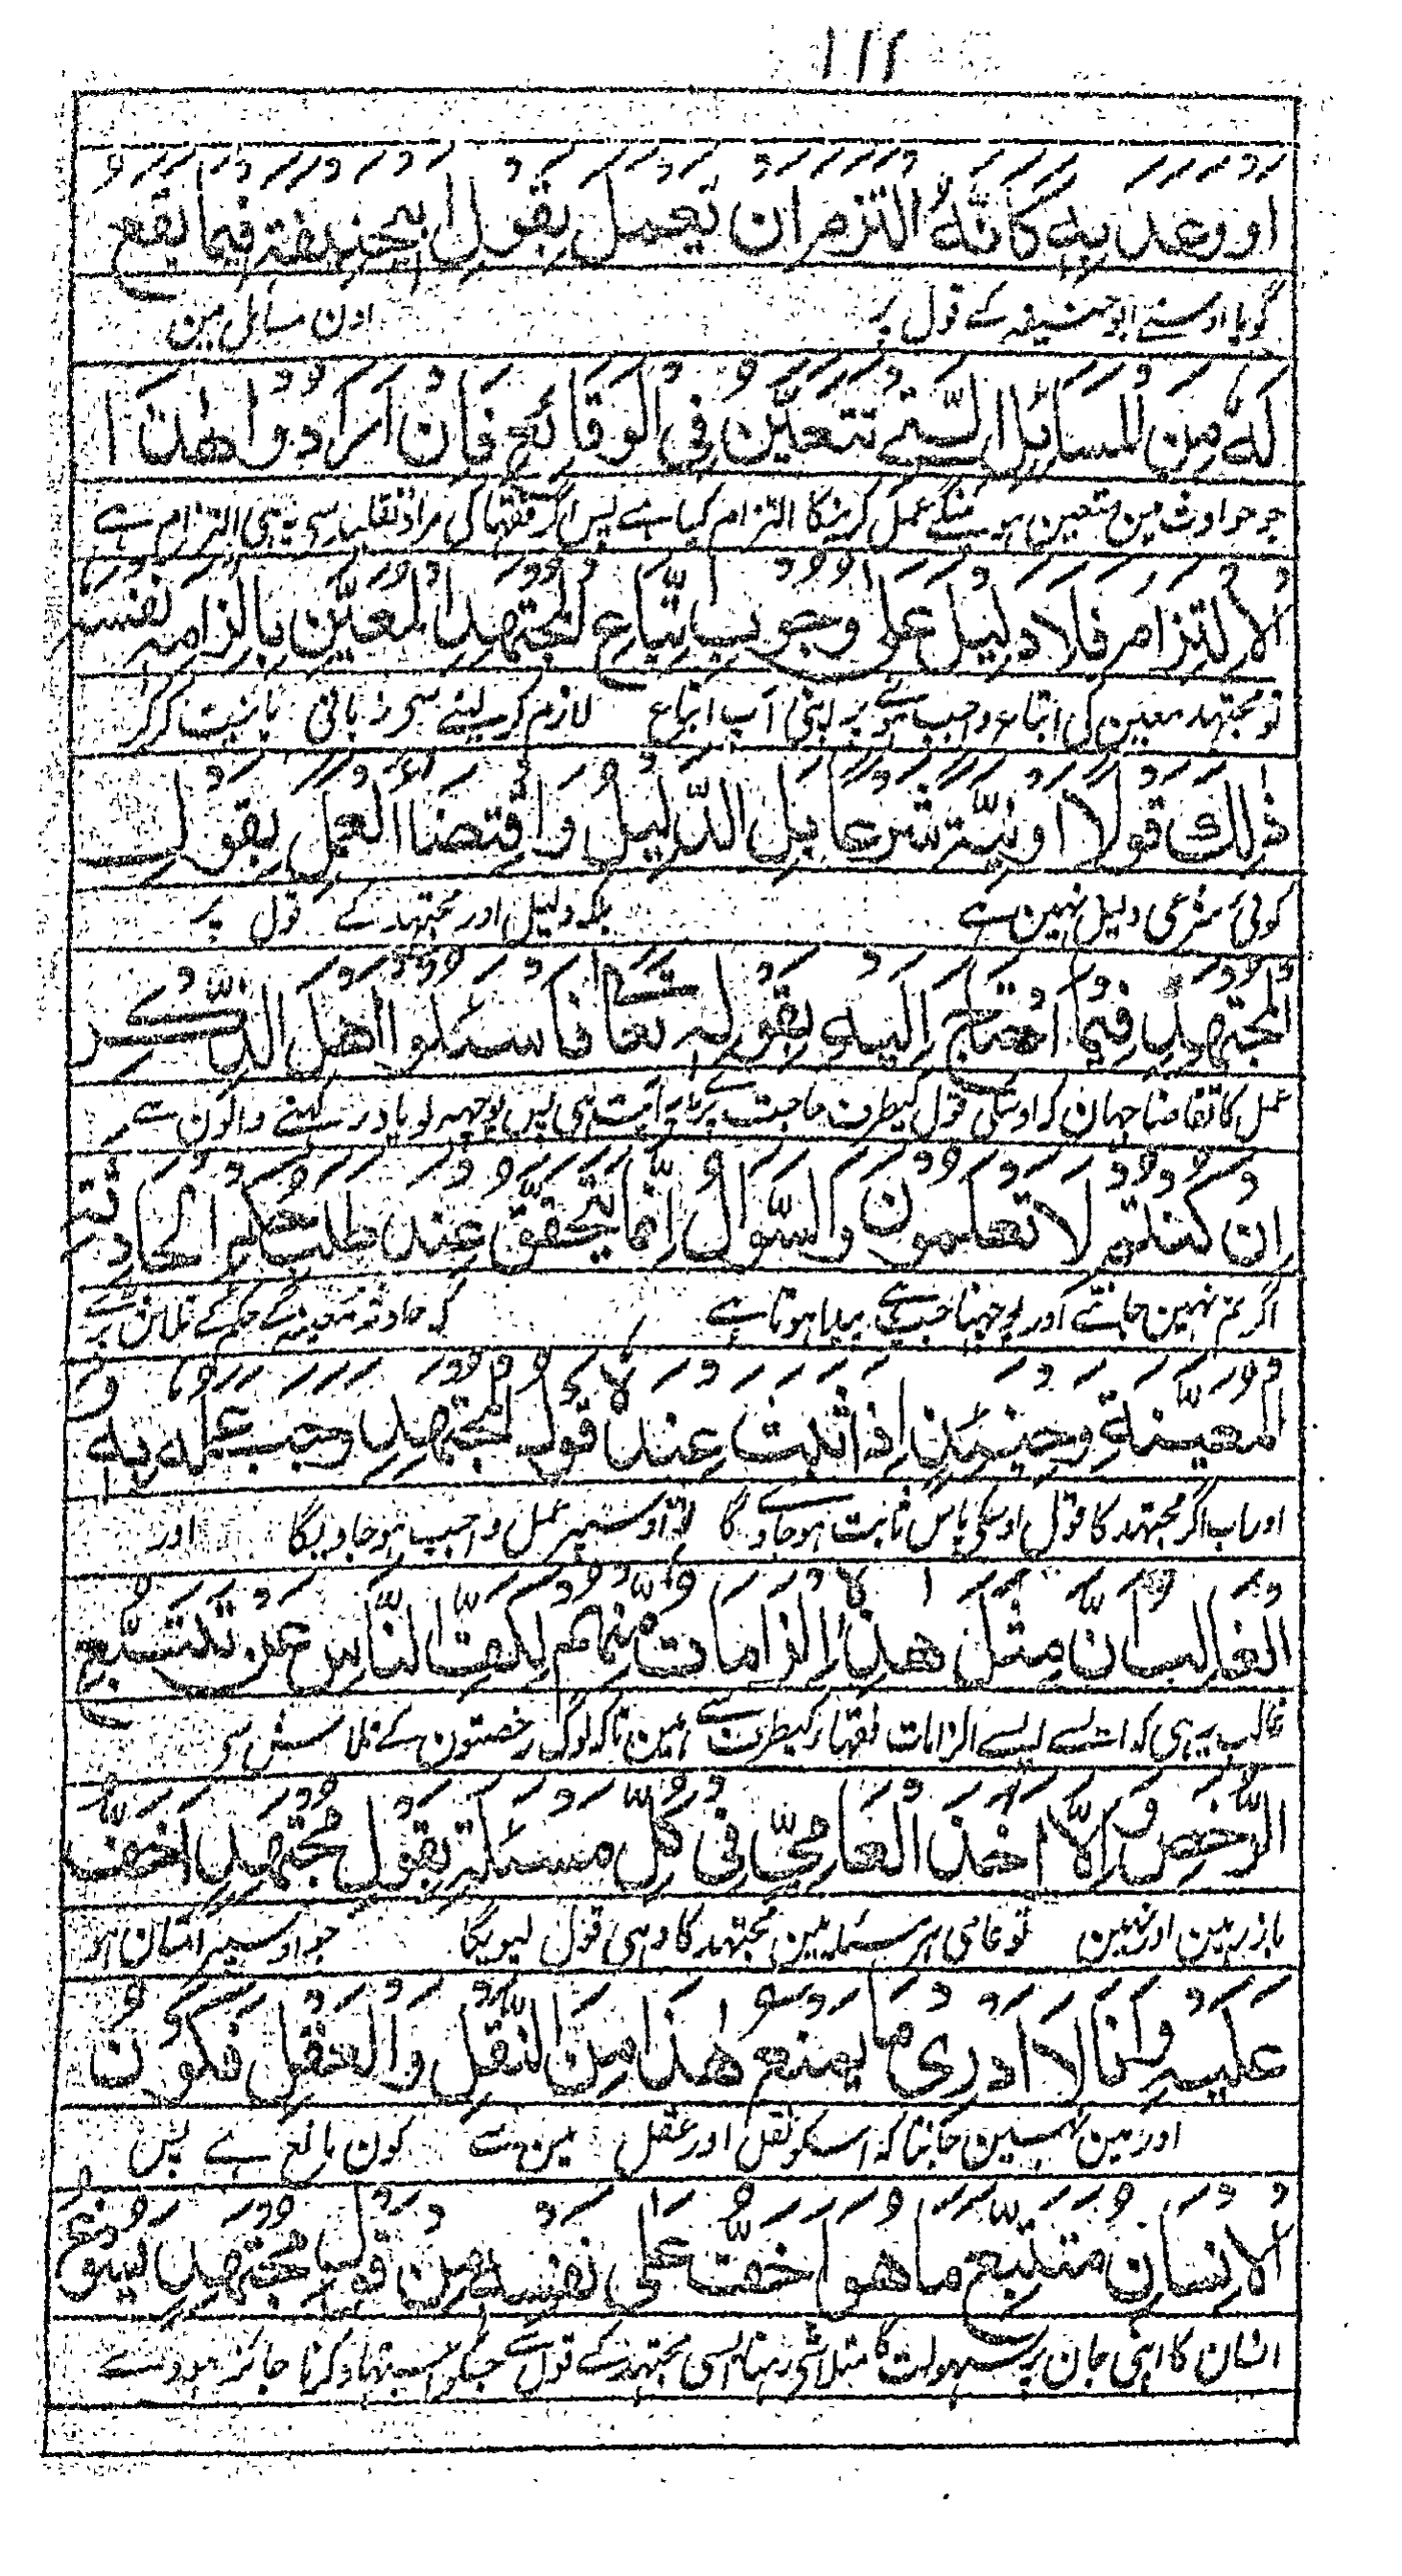 ۱۱۲
او وعد به كانه التزم ان يعمل بقول ابيحنيفة فيما يقع
گویا اوسنے ابو حنیفہ کے قول پر اون مسائل مین
له من المسائل التے تتعين فى الوقائع فان ارادوا هذا ا
جو حوادث مین متعین ہونگے عمل کرنیکا التزام کیا ہے پس اگر فقہا کی مراد تقلید سی یہی التزام ہے
الالتزام فلا دليل على وجوب اتباع المجتهد المعين بالزامه نفسه
تو مجتہد معین کی اتباع واجب ہونے پر اپنی آپ اتباع لازم کر لینے سی زبانی یا نیت کر کر
ذلك قولا او نية شرعا بل الدليل واقتضا العمل بقول
کوئی شرعی دلیل نہین ہے بلکہ دلیل اور مجتہد کے قول پر
المجتهد فيما احتاج اليه بقوله تعا فاسئلوا اهل الذكر
عمل کا تقاضا جہان کہ اوسکی قول کیطرف حاجت پڑے یہ آیت ہی پس پوچھہ لو یاد رکہنے والون سے
ان كنتم لا تعلمون والسوال انما يتحقق عند طلب حكم الحادثة
اگر تم نہین جانتے اور پوچہنا جب ہی پیدا ہوتا ہے کہ حادثہ معینہ کے حکم کے تلاش پڑے
المعينة وحينئذ اذا ثبت عنده قول المجتهد وجب عمله به و
اوراب اگر مجتہد کا قول اوسکی پاس ثابت ہو جاویگا تو اوسپر عمل واجب ہو جاویگا اور
الغالب ان مثل هذه الزامات منهم لكف الناس عن تتبع
غالب یہ ہی کہ ایسے ایسے الزامات فقہا کیطرف سے ہین تاکہ لوگ رخصتون کے تلاش سی
الرخص والا اخذ العامى فى كل مسئلة بقول مجتهد اخف
باز رہین اور نہین تو عامی ہر مسئلہ مین مجتہد کا وہی قول لیویگا جو اوسپر آسان ہو
عليه وانا لا ادرى ما يمنع هذا من النقل والعقل فكون
اور مین نہین جانتا کہ اسکو نقل اور عقل مین سے کون مانع ہے پس
الانسان متتبع ما هو اخف على نفسه من قول مجتهد يسوغ
انسان کا اپنی جان پر سہولت کا متلاشی رہنا اوسی مجتہد کے قول سے جسکو اجتہاد کرنا جائز ہووے